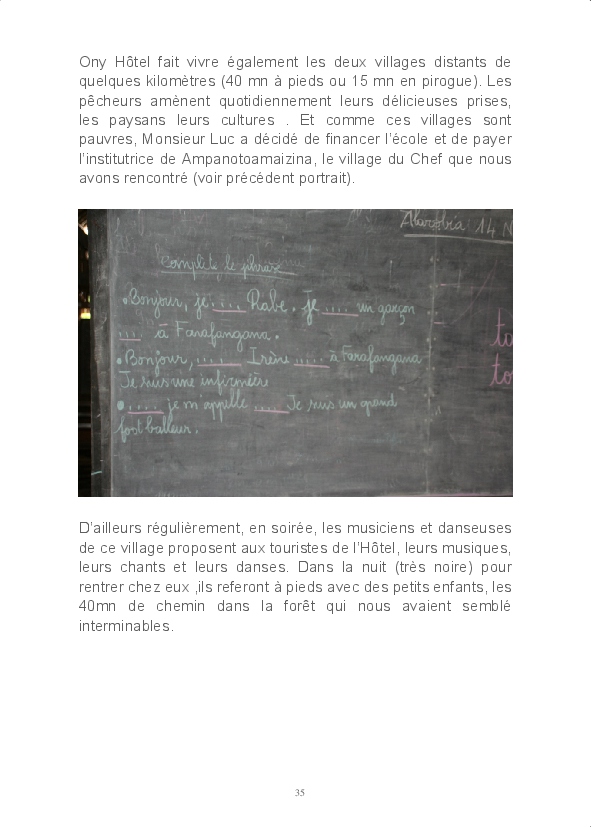 Ony Hôtel fait vivre également les deux villages distants de
quelques kilomètres (40 mn à pieds ou 15 mn en pirogue). Les
pêcheurs amènent quotidiennement leurs délicieuses prises,
les paysans leurs cultures . Et comme ces villages sont
pauvres, Monsieur Luc a décidé de financer l’école et de payer
l’institutrice de Ampanotoamaizina, le village du Chef que nous
avons rencontré (voir précédent portrait).
Alarobia 14 N
Complète le phrase
•Bonjour, je .... Rabe. Je .... un garçon
.... à Farafangana.
•Bonjour, ..... Irène ..... à Farafangana
Je suis une infirmière
•.... je m'appelle .... Je suis un grand
foot balleur.
to
D’ailleurs régulièrement, en soirée, les musiciens et danseuses
de ce village proposent aux touristes de l’Hôtel, leurs musiques,
leurs chants et leurs danses. Dans la nuit (très noire) pour
rentrer chez eux ,ils referont à pieds avec des petits enfants, les
40mn de chemin dans la forêt qui nous avaient semblé
interminables.
35